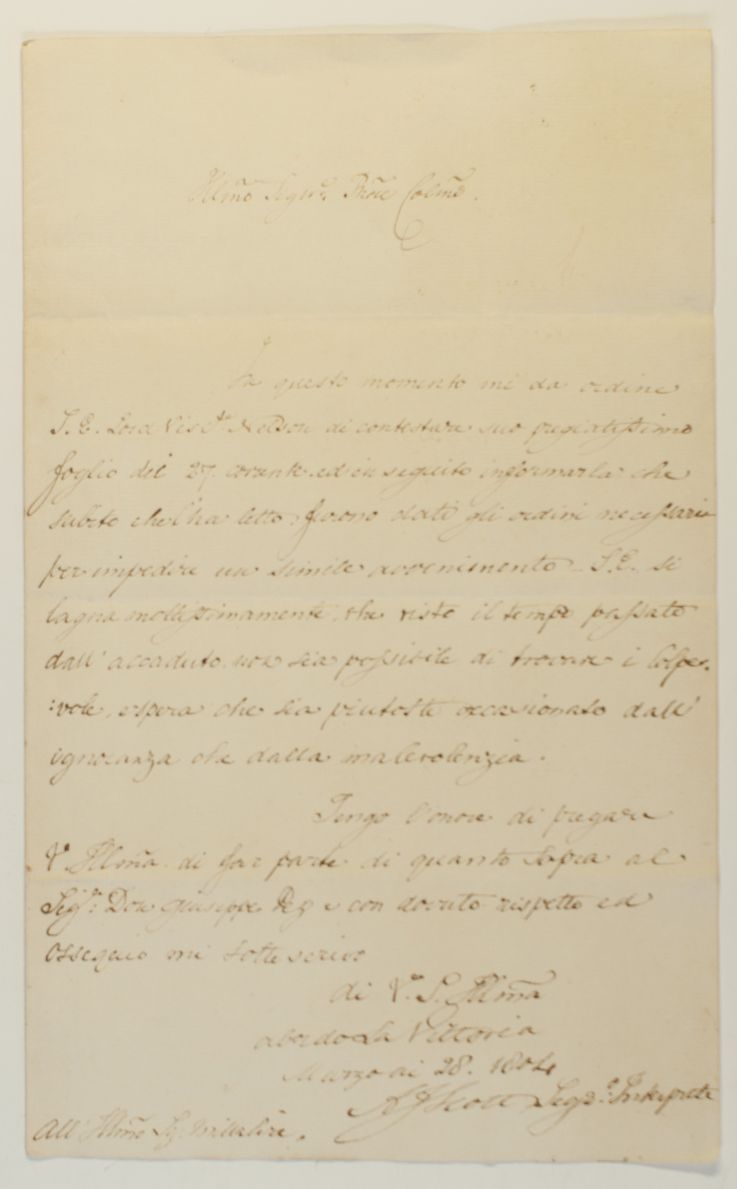 Illmõ Sigre Prõne Colmõ.
In questo momento mi da ordine
S.E. Lord Visct. Nelson di contestare suo pregiatissimo
foglio del 27 corante ed in seguito informarla che
subito che l'ha letto, furono dati gli ordini necessarii
per impedire un simile avvenimento - S.E. si
lagna moltissimamente, che visto il tempo passato
dall' accaduto non sia possibile di trovare i Colpe-
:vole, espera che sia piutosto occasionato dall'
ignoranza che dalla malevolenzia.
Tengo l'onore di pregare
V. Illmã di far parte di quanto Sopra al
Sigr: Don Giuseppe e con dovuto rispetto ed
Ossequio mi sottoscrivo
di V. S. Illmã
abordo La Vittoria
Marzo ai 28. 1804
AJScott Segro. Interprete
All' Illmõ Sigr Millelire.